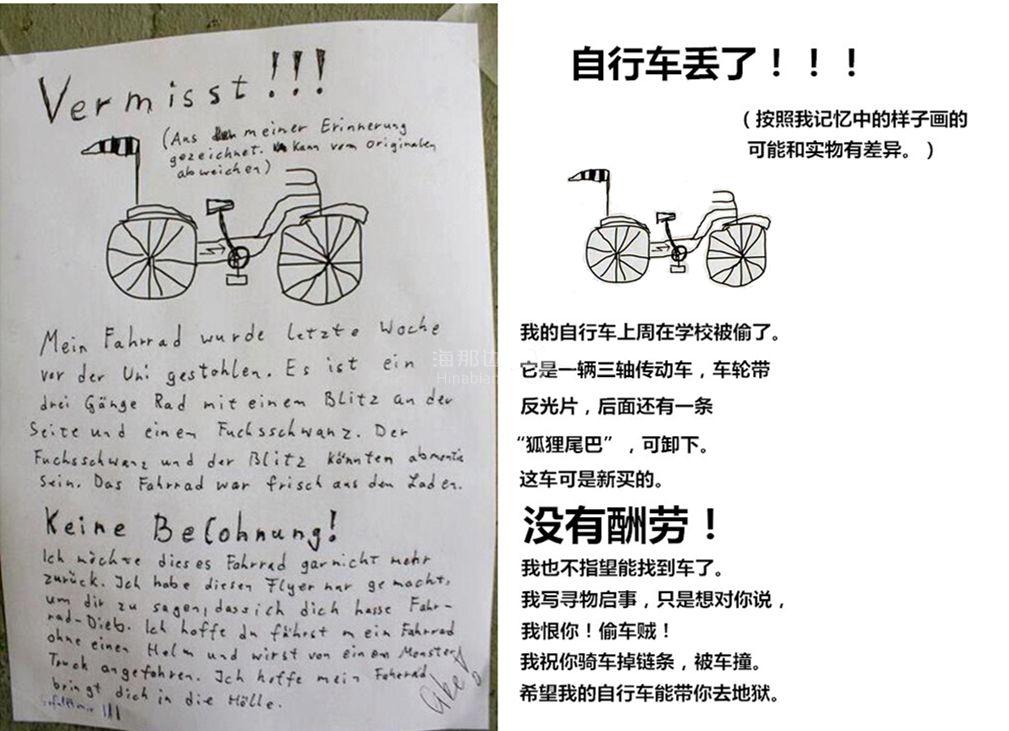 Vermisst!!!
(Aus meiner Erinnerung
gezeichnet. Kann vom originalen
abweichen)
Mein Fahrrad wurde letzte Woche
vor der Uni gestohlen. Es ist ein
drei Gänge Rad mit einem Blitz an der
Seite und einen Fuchsschwanz. Der
Fuchsschwanz und der Blitz könnten
sein. Das Fahrrad war frisch aus den Laden.
Keine Belohnung!
Ich möchte dieses Fahrrad garnicht mehr
zurück. Ich habe diesen Flyer nur gemacht,
um dir zu sagen, dass ich dich hasse Fahr-
rad-Dieb. Ich hoffe du fährst mein Fahrrad
ohne einen Helm und wirst von einem Monster
Truck angefahren. Ich hoffe mein Fahrrad
bringt dich in die Hölle.
海那边
自行车丢了！！！
（按照我记忆中的样子画的
可能和实物有差异。）
我的自行车上周在学校被偷了。
它是一辆三轴传动车，车轮带
反光片，后面还有一条
“狐狸尾巴”，可卸下。
这车可是新买的。
没有酬劳！
我也不指望能找到车了。
我写寻物启事，只是想对你说，
我恨你！偷车贼！
我祝你骑车掉链条，被车撞。
希望我的自行车能带你去地狱。